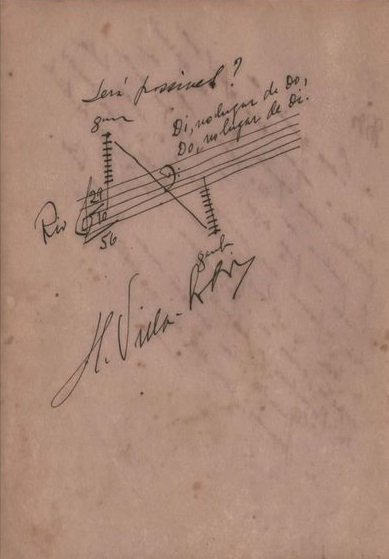 Será possivel?
Di, no lugar de Do,
Do, no lugar de Di.
Rio
29
10
56
H. Villa-Lobos